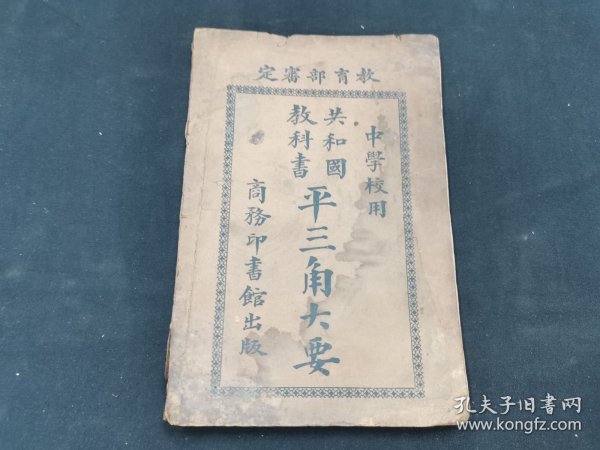 教育部審定
中學校用
共和國
教科書
平三角大要
商務印書館出版
孔夫子旧书网
www.kongfz.com